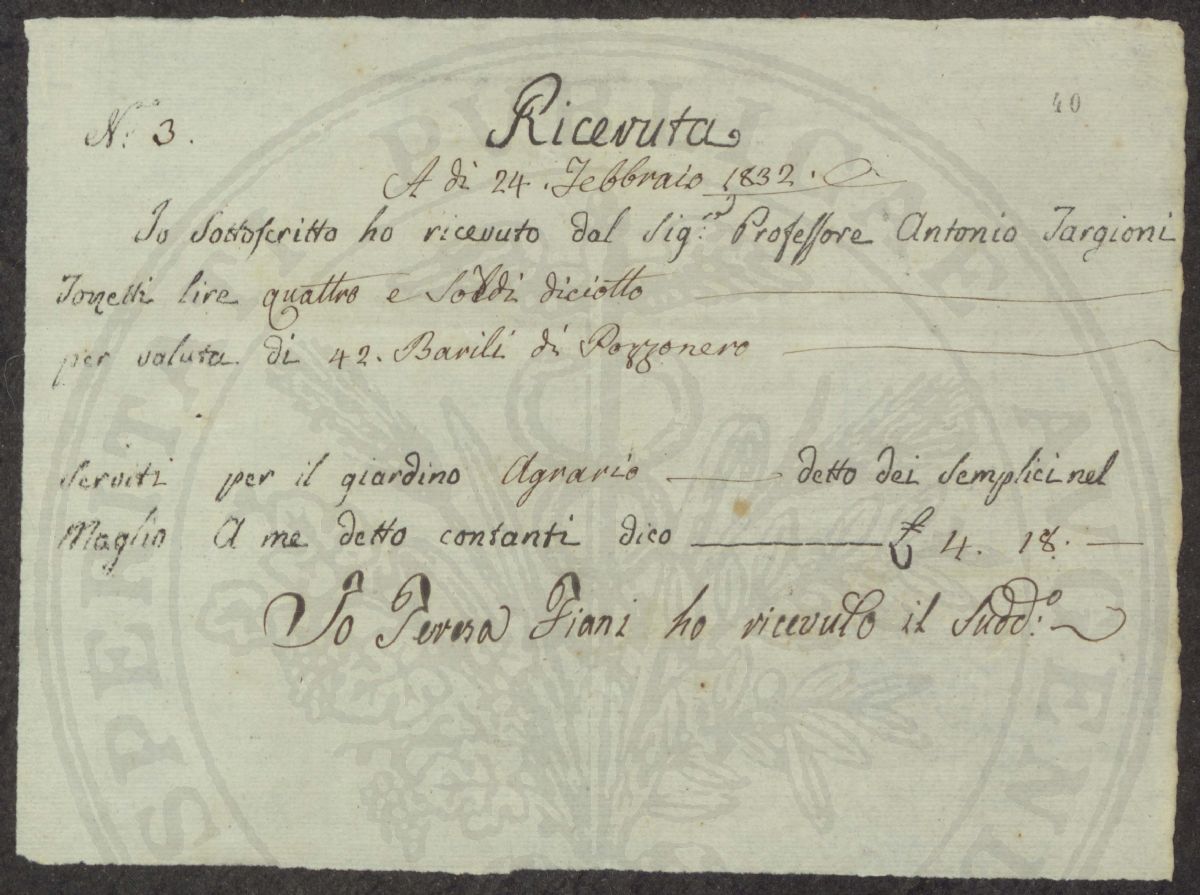 40
N.º 3.
Ricevuta
A di 24. Febbraio 1832.
Io Sottoscritto ho ricevuto dal Sig.re Professore Antonio Targioni
Tozzetti lire quattro e Soldi diciotto
per valuta di 42. Barili di Pozzonero
Serviti per il giardino Agrario detto dei Semplici nel
Maglio A me detto contanti dico £ 4. 18.
Io Teresa Fiani ho ricevuto il Sudd.o
PROSPERITATI PUBLICAE AUGENDAE